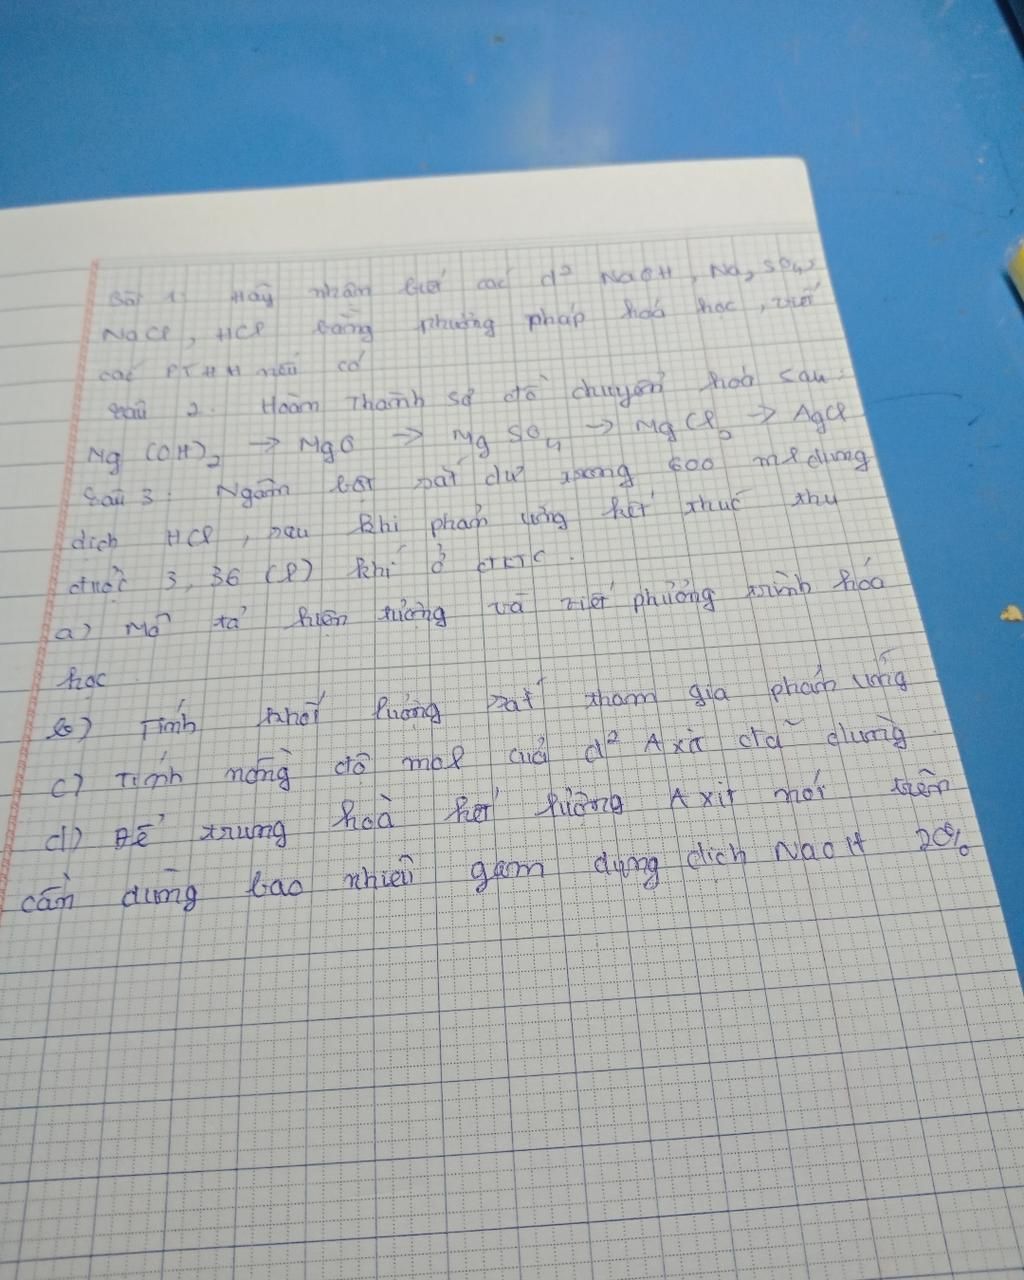 Bài 1: Hãy nhận biết các d² NaOH, Na₂SO₄,
NaCl, HCl bằng phương pháp hoá học, viết
các PTHH nếu có
Câu 2. Hoàn thành sơ đồ chuyển hoá sau:
Mg(OH)₂ → MgO → MgSO₄ → MgCl₂ → AgCl
Câu 3: Ngâm bột sắt dư trong 600 ml dung
dịch HCl, sau khi phản ứng kết thúc thu
được 3,36 (l) khí ở đktc.
a) Mô tả hiện tượng và viết phương trình hóa
học
b) Tính khối lượng sắt tham gia phản ứng
c) Tính nồng độ mol của d² Axit đã dùng
d) Để trung hoà hết lượng Axit nói trên
cần dùng bao nhiêu gam dung dịch NaOH 20%